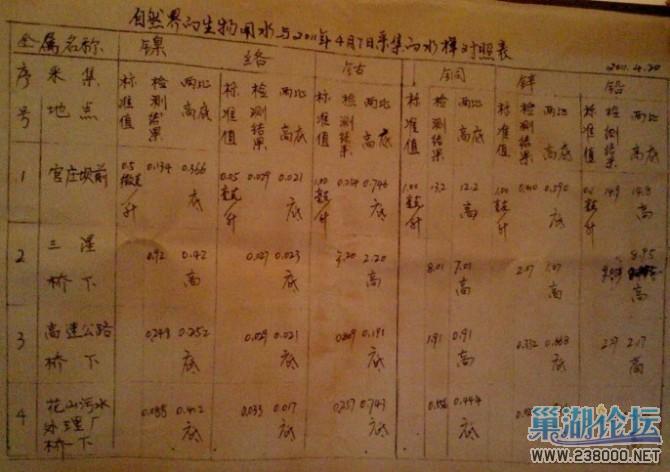 自然界的生物用水与2011年4月7日采集的水样对照表
2011.4.20
金属名称 镍 铬 钴 铜 锌 铅
序号 采集地点 标准值 检测结果 两比高底 标准值 检测结果 两比高底 标准值 检测结果 两比高底 标准值 检测结果 两比高底 标准值 检测结果 两比高底 标准值 检测结果 两比高底
1 官庄坝前 0.5 /升 0.134 0.366 底 0.05 /升 0.029 0.021 底 1.00 /升 0.254 0.746 底 1.00 /升 13.2 12.2 高 1.00 /升 0.590 底 0.1 /升 14.9 14.8 高
2 三湾桥下 0.92 0.42 高 0.027 0.023 底 3.20 2.20 高 8.01 7.01 高 2.07 1.07 高 8.95 高
3 高速公路桥下 0.248 0.252 底 0.029 0.021 底 0.191 高 1.91 0.91 高 0.332 0.668 底 2.17 高
4 花山污水处理厂桥下 0.088 0.412 底 0.033 0.017 底 0.257 0.743 底 0.556 0.444 底
巢湖论坛
www.238000.net